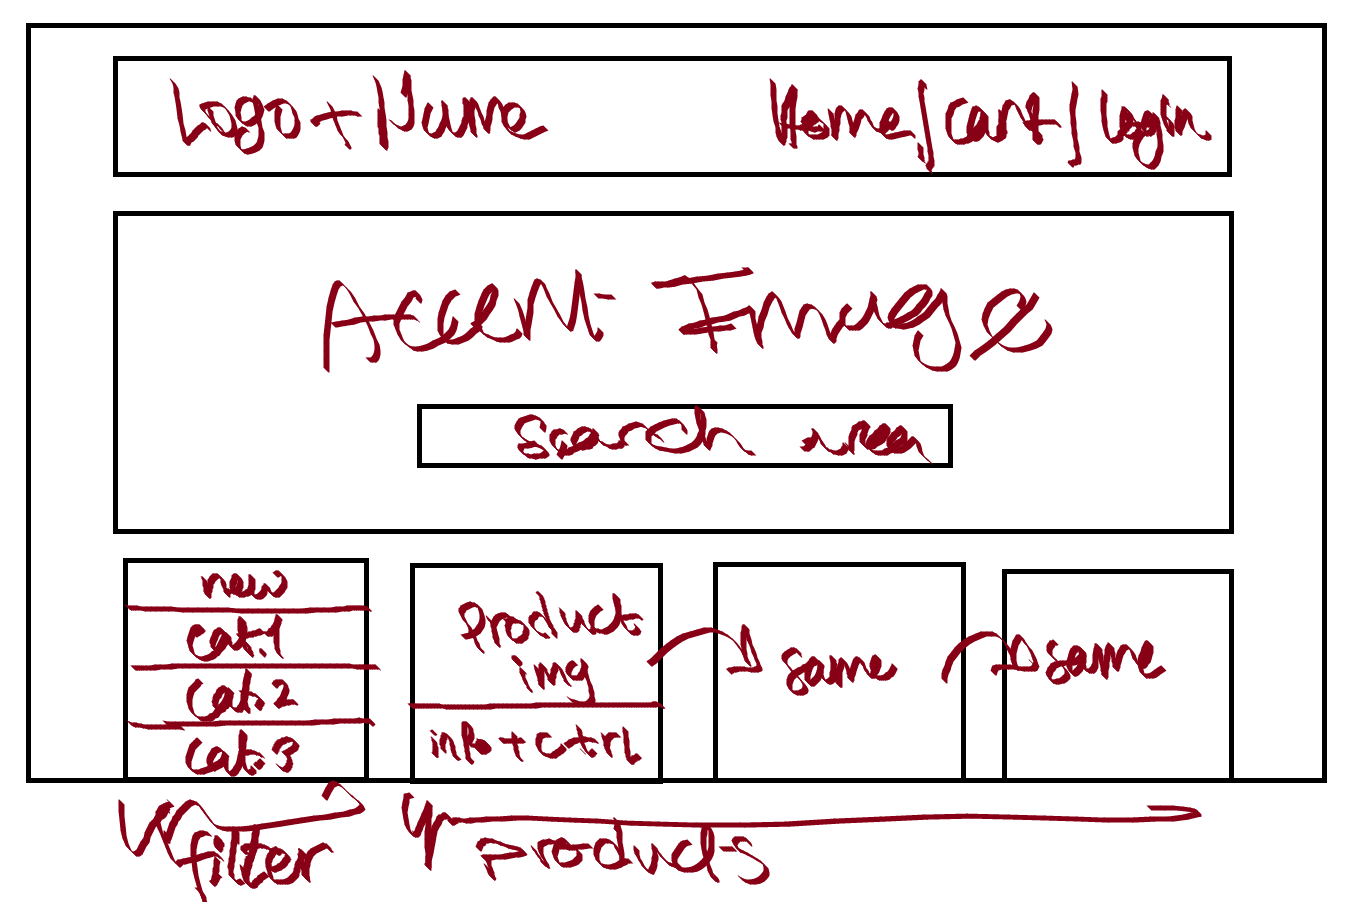 Logo + Name
Home/cart/login
Accent Image
search area
new
cat.1
cat.2
cat.3
product
img
info + ctrl
same
same
filter
products